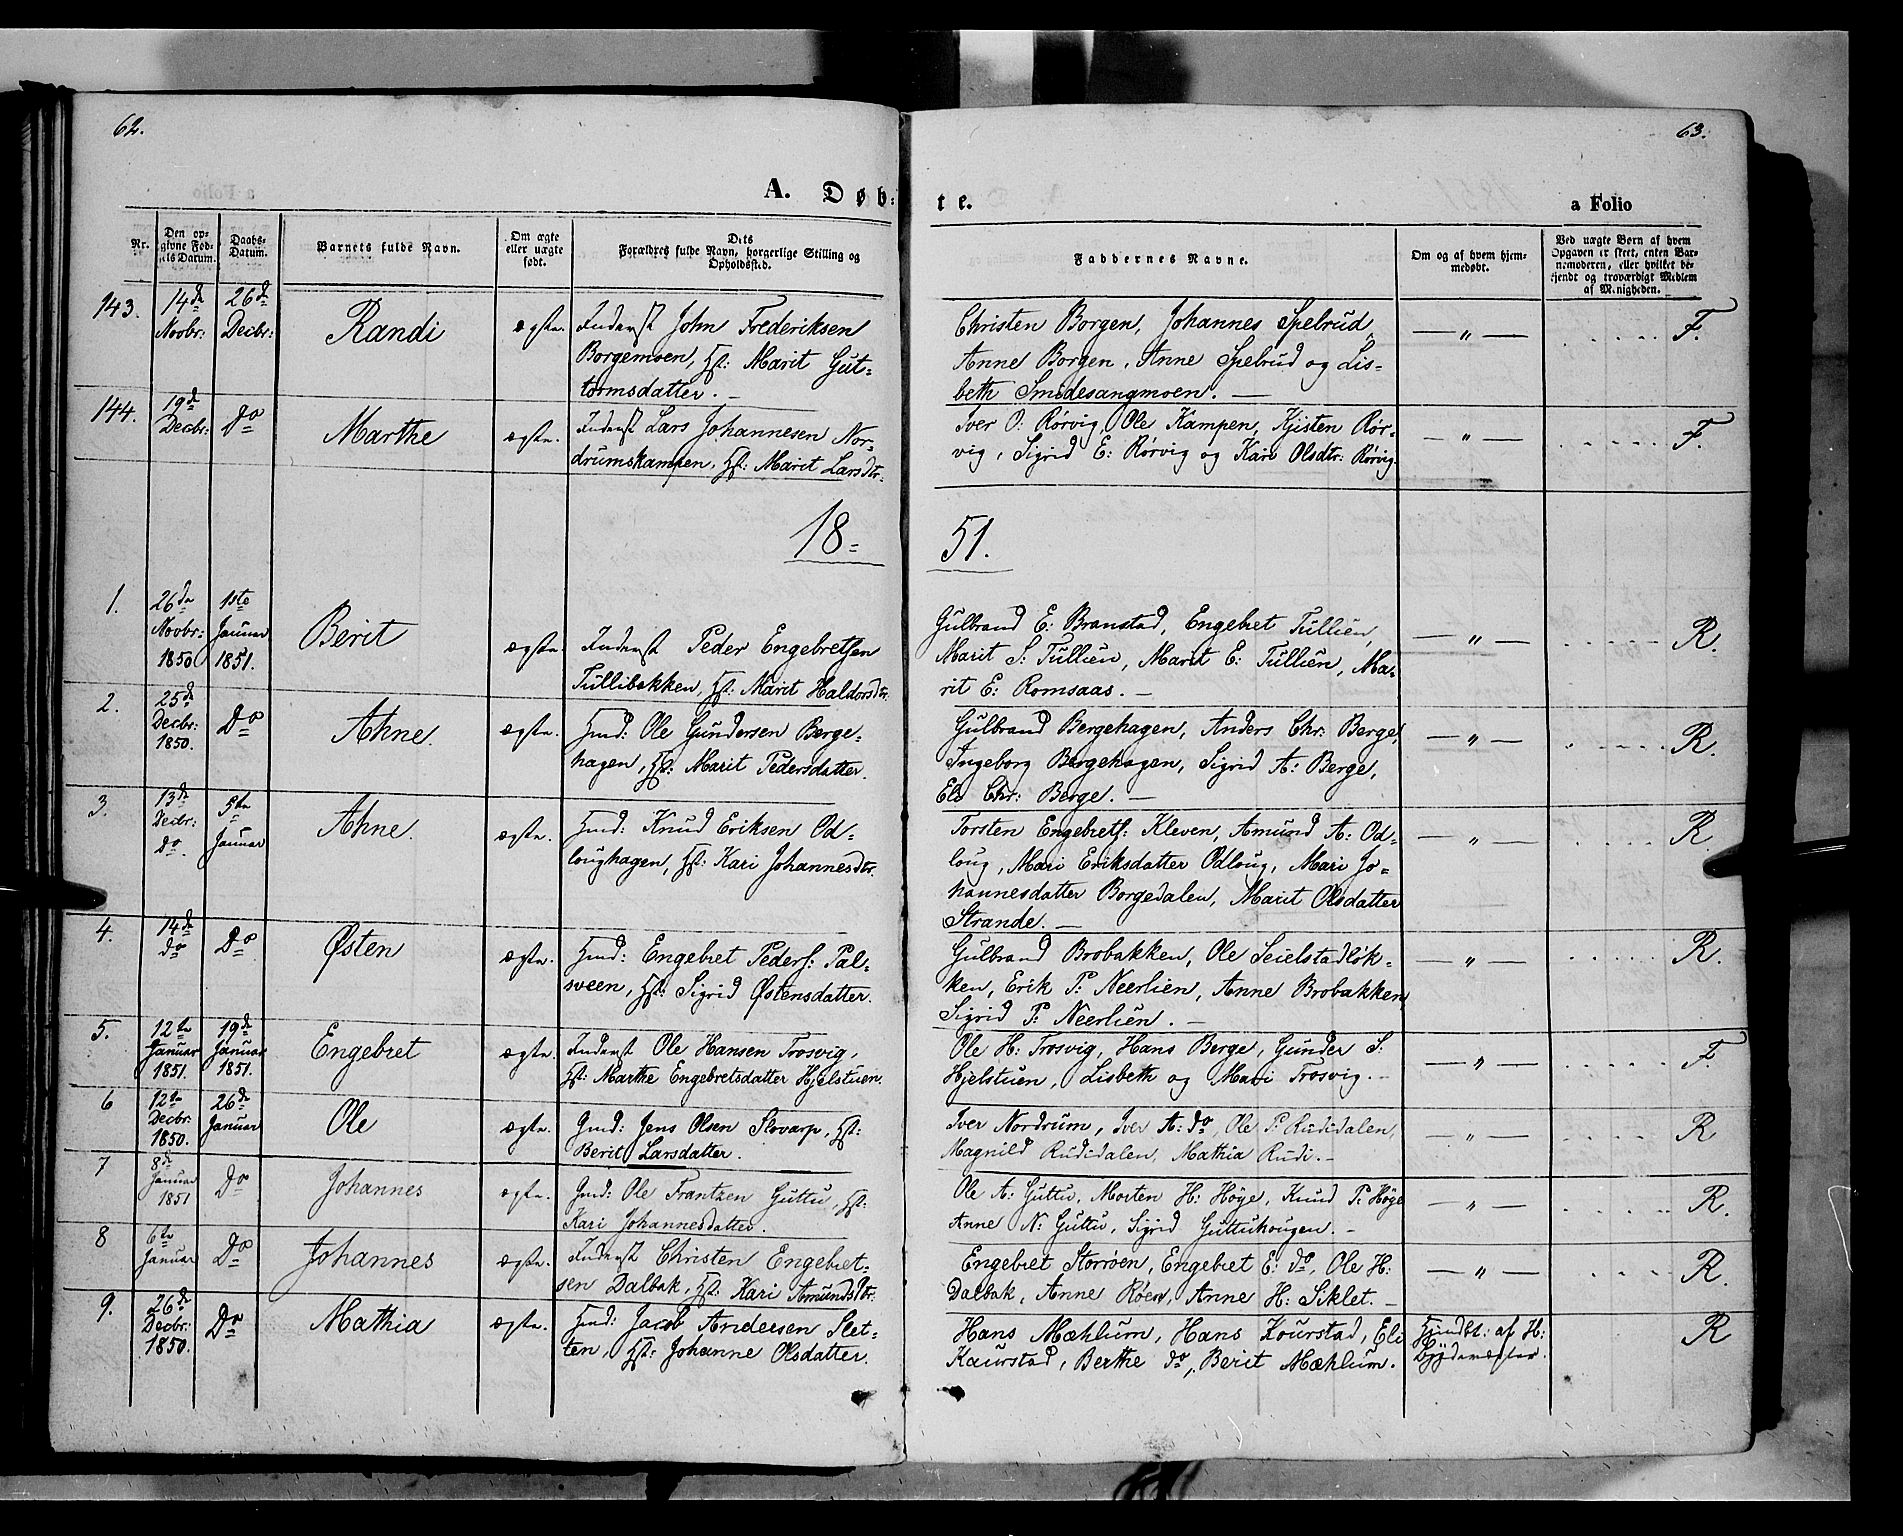 62.
63.
A. Døb-
te.
a Folio
Nr.
Den op-
givne Fød-
sels Datum.
Daabs-
Datum.
Barnets fulde Navn.
Om ægte
eller uægte
født.
Dets
Forældres fulde Navn, borgerlige Stilling og
Opholdssted.
Faddernes Navne.
Om og af hvem hjem-
medøbt.
Ved uægte Børn af hvem
Opgaven er skeet, enten Bar-
nemoderen, eller hvilket be-
kjendt og troværdigt Medlem
af Menigheden.
143. 14de Novbr: 26de Decbr: Randi ægte. Inderst John Frederiksen
Borgemoen, Hst: Marit Gut-
tormsdatter. -
Christen Borgen, Johannes Spelrud,
Anne Borgen, Anne Spelrud og Lis-
beth Smidesangmoen. —
— " — F.
144. 19de Decbr: Do Marthe ægte. Inderst Lars Johannesen Nor-
drumskampen, Hst: Marit Larsdtr.
Iver O: Rørvig, Ole Kampen, Kjisten Rør-
vig, Sigrid E: Rørvig og Kari Olsdtr: Rørvig.
— " — F.
18=
51.
1. 26de Novbr: 1850 1ste Januar 1851. Berit ægte. Inderst Peder Engebretsen
Tullibakken, Hst: Marit Haldorsdtr.
Gulbrand E: Branstad, Engebret Tullien,
Marit S: Tullien, Marit E: Tullien, Ma-
rit E: Romsaas. —
— " — R.
2. 25de Decbr: 1850. Do Ahne. ægte. Hmd: Ole Gundersen Berge-
hagen, Hst: Marit Pedersdatter.
Gulbrand Bergehagen, Anders Chr: Berge,
Ingeborg Bergehagen, Sigrid A: Berge,
Eli Chr: Berge. —
— " — R.
3. 13de Decbr: Do. 5te Januar Ahne. ægte. Hmd: Knud Eriksen Od-
loughagen, Hst: Kari Johannesdtr.
Torsten Engebrets: Kleven, Amund A: Od-
loug, Mari Eriksdatter Odloug, Mari Jo-
hannesdatter Borgedalen, Marit Olsdatter
Strande. —
— " — R.
4. 14de do Do Østen ægte. Hmd: Engebret Peders: Pal-
sveen, Hst: Sigrid Østensdatter.
Gulbrand Brobakken, Ole Seielstadløk-
ken, Erik P: Neerlien, Anne Brobakken,
Sigrid P: Neerlien. —
— " — R.
5. 12te Januar 1851. 19de Januar 1851. Engebret ægte. Inderst Ole Hansen Trosvig,
Hst: Marthe Engebretsdatter Hjelstuen.
Ole H: Trosvig, Hans Berge, Gunder S:
Hjelstuen, Lisbeth og Mari Trosvig. -
— " — F.
6 12te Decbr: 1850. 26de Januar Ole ægte. Gmd: Jens Olsen Slovarp, Hst:
Berit Larsdatter.
Iver Nordrum, Iver A: do, Ole P: Rudidalen,
Magnild Rudidalen, Mathia Rudi. -
— " — R
7 8de Januar 1851 Do Johannes ægte. Gmd: Ole Frantzen Guttu, Hst:
Kari Johannesdatter.
Ole A: Guttu, Morten H: Høge, Knud P: Høge
Anne N: Guttu, Sigrid Guttuhougen. -
— " — R.
8 6te Januar Do Johannes ægte. Inderst Christen Engebret-
sen Dalbak, Hst: Kari Amundsdtr.
Engebret Storrøen, Engebret E: do, Ole H:
Dalbak, Anne Røen, Anne H: Siklet. -
— " — R.
9. 26de Decbr: 1850. Do Mathia ægte. Hmd: Jacob Andersen Slet-
ten, Hst: Johanne Olsdatter.
Hans Mæhlum, Hans Kourstad, Eli
Kaurstad, Berthe do, Berit Mæhlum.
Hjmdbt: af H:
R